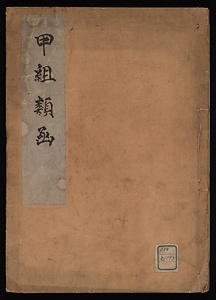 甲組類函